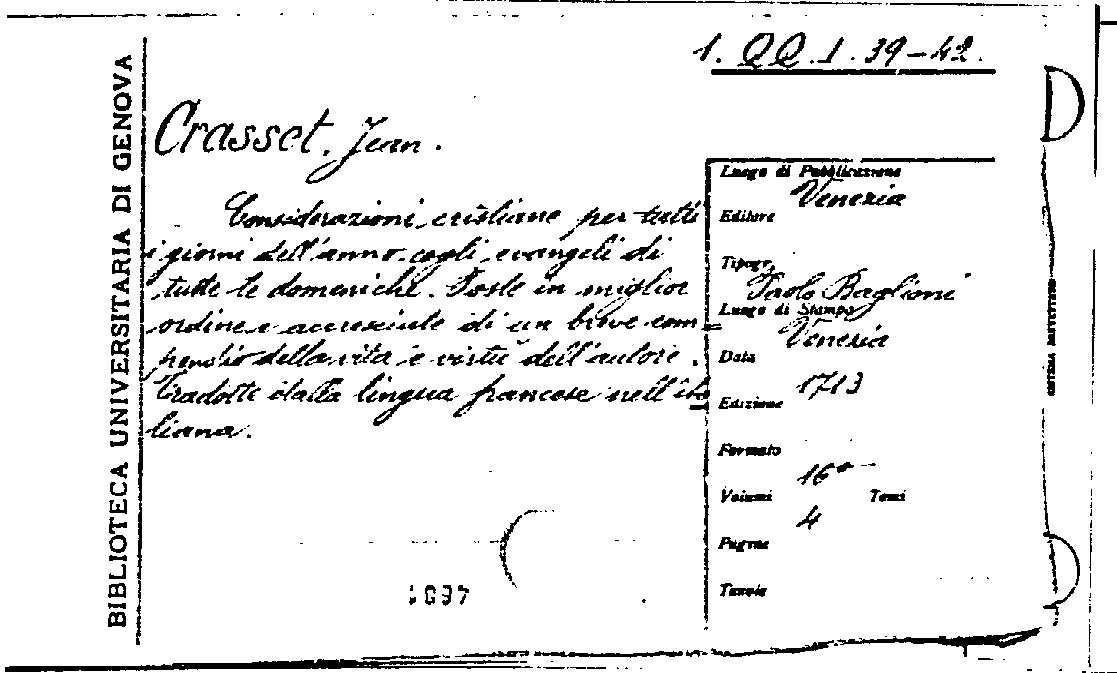 1. QQ. I. 39-42.
BIBLIOTECA UNIVERSITARIA DI GENOVA
Crasset, Jean.
Considerazioni cristiane per tutti
i giorni dell'anno cogli evangeli di
tutte le domeniche. Poste in miglior
ordine e accresciute di un breve com=
pendio della vita e virtù dell'autore.
Tradotte dalla lingua francese nell'ita=
liana.
Luogo di Pubblicazione
Venezia
Editore
Tipogr.
Paolo Baglioni
Luogo di Stampa
Venezia
Data
1713
Edizione
Formato
16°
Volumi Tomi
4
Pagine
Tavole
1097